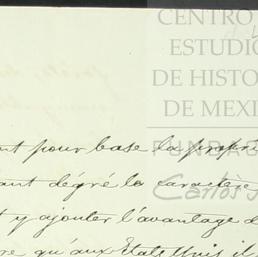 CENTRO
ESTUDIO
DE HISTOR
DE MEXI
FUNDA
Carlos
nt pour base la propri
ant dégré le caractère
t y ajouter l'avantage d
re qu'aux États Unis il